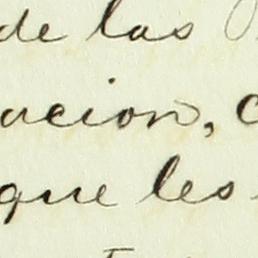 de las
acion,
que les